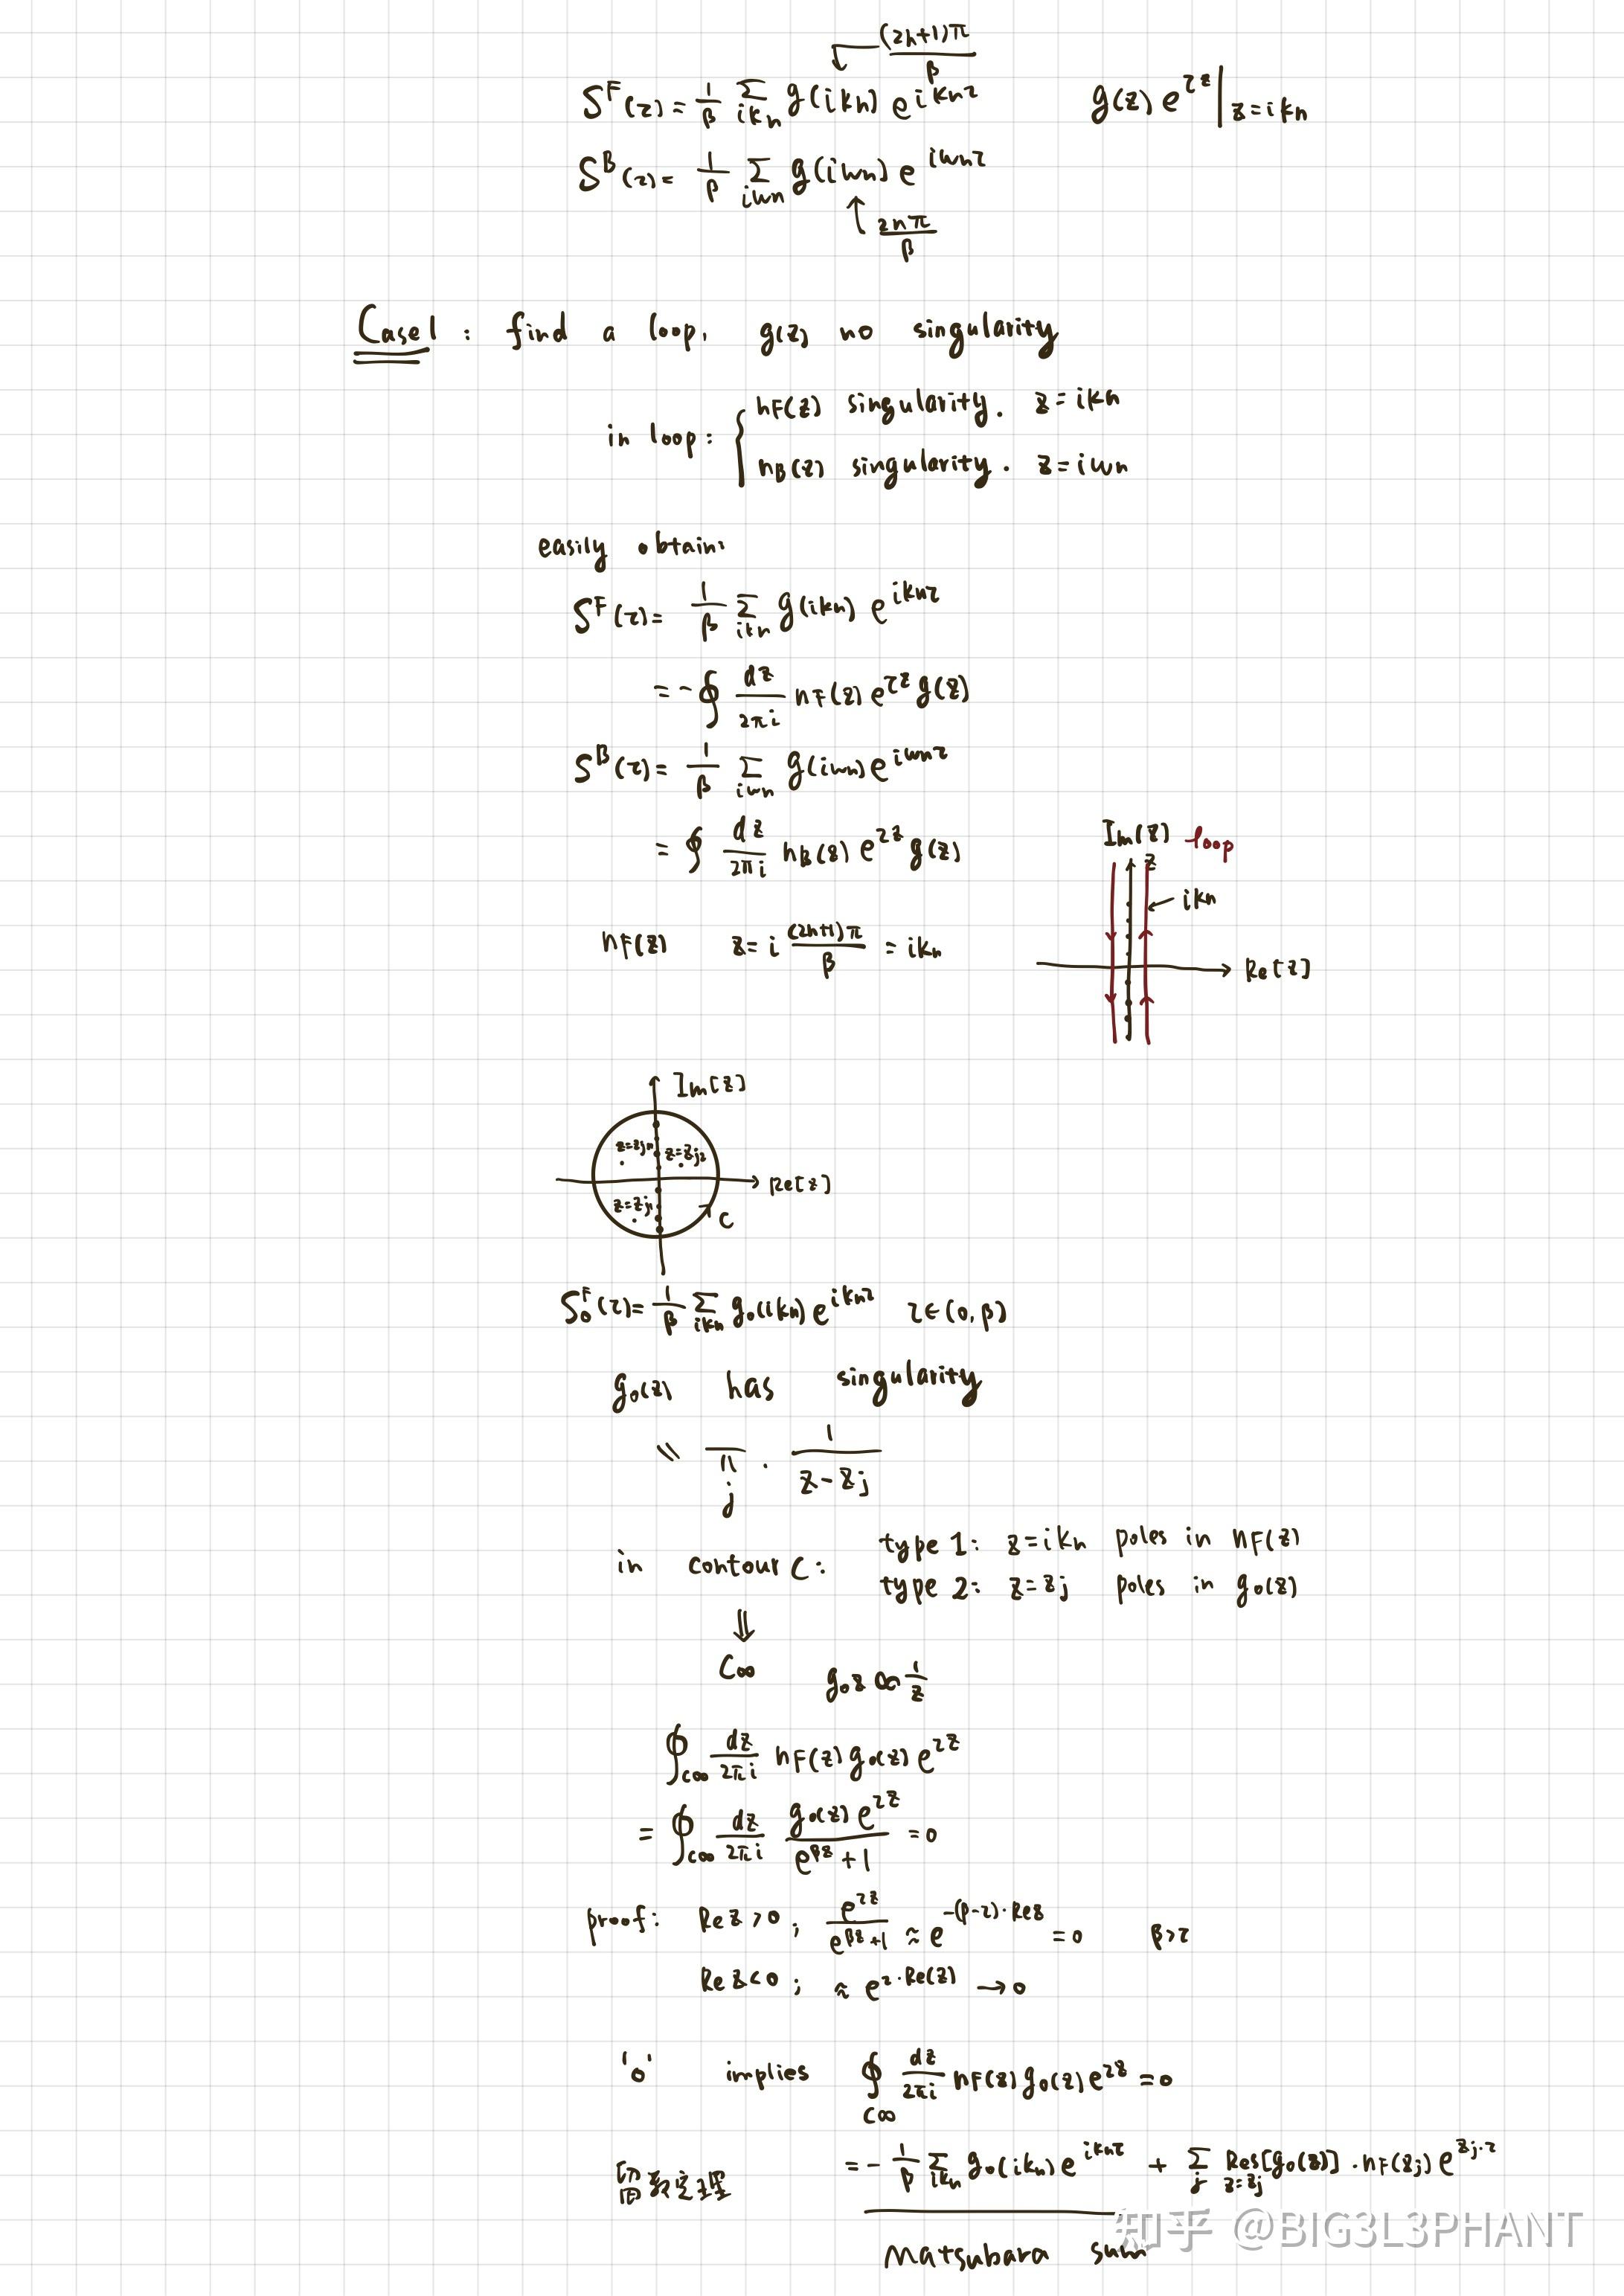 (2n+1)π/β
S^F(τ) = 1/β Σ_{ik_n} g(ik_n) e^{ik_nτ}    g(z) e^{τz}|_{z=ik_n}
S^B(τ) = 1/β Σ_{iω_n} g(iω_n) e^{iω_nτ}
↑ 2nπ/β
Case 1: find a loop, g(z) no singularity
in loop: { n_F(z) singularity. z=ik_n
n_B(z) singularity. z=iω_n
easily obtain:
S^F(τ) = 1/β Σ_{ik_n} g(ik_n) e^{ik_nτ}
= -∮ dz/2πi n_F(z) e^{τz} g(z)
S^B(τ) = 1/β Σ_{iω_n} g(iω_n) e^{iω_nτ}
= ∮ dz/2πi n_B(z) e^{τz} g(z)
Im(z) loop
z
ik_n
n_F(z)    z = i (2n+1)π/β = ik_n
Re[z]
Im[z]
z=z_{j1} z=z_{j2}
Re[z]
z=z_{jn}
C
S_0^F(τ) = 1/β Σ_{ik_n} g_0(ik_n) e^{ik_nτ}    τ∈(0,β)
g_0(z) has singularity
\\ Π_j · 1/(z-z_j)
in contour C: type 1: z=ik_n poles in n_F(z)
type 2: z=z_j poles in g_0(z)
⇓
C∞    g_0z ∝ 1/z
∮_{C∞} dz/2πi n_F(z) g_0(z) e^{τz}
= ∮_{C∞} dz/2πi g_0(z) e^{τz}/(e^{βz}+1) = 0
proof: Re z>0; e^{τz}/(e^{βz}+1) ≈ e^{-(β-τ)·Re z} = 0    β>τ
Re z<0; ≈ e^{τ·Re(z)} → 0
'0' implies ∮_{C∞} dz/2πi n_F(z) g_0(z) e^{τz} = 0
留数定理 = -1/β Σ_{ik_n} g_0(ik_n) e^{ik_nτ} + Σ_j Res_{z=z_j}[g_0(z)]·n_F(z_j) e^{z_j·τ}
Matsubara sum
知乎 @BIG3L3PHANT